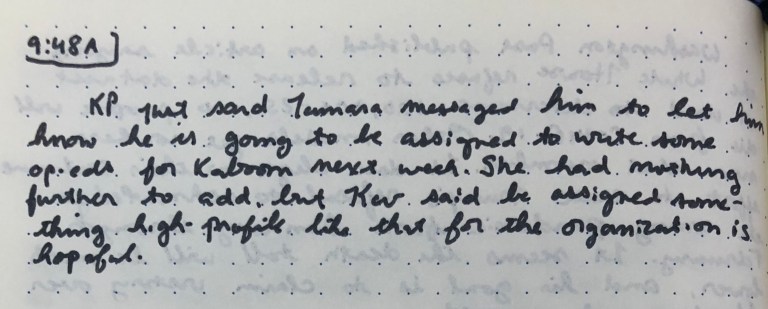 9:48A
KP just said Tamara messaged him to let him
know he is going to be assigned to write some
op-eds for Kaboom next week. She had nothing
further to add, but Kev said be assigned some-
thing high-profile like that for the organization is
hopeful.